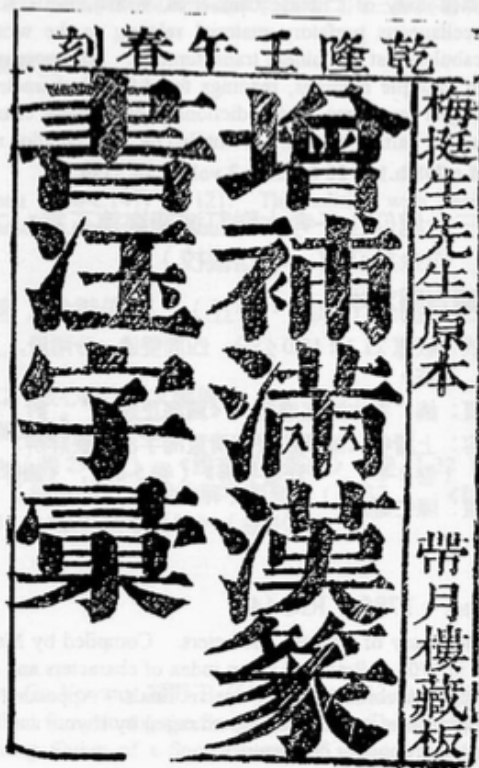 乾隆壬午春刻
梅挺生先生原本 帶月樓藏板
增補滿漢篆
書汪字彙